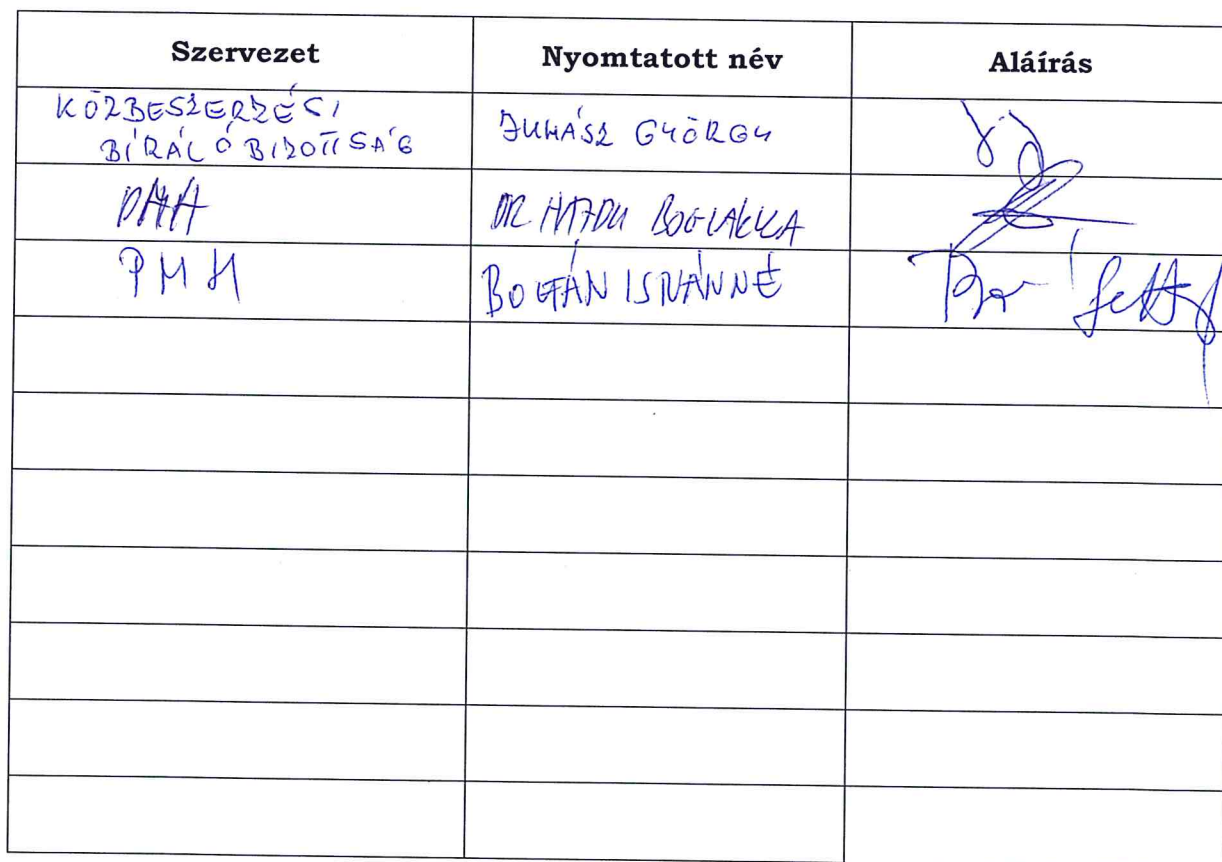 Szervezet Nyomtatott név Aláírás
KÖZBESZERZÉSI
BÍRÁLÓ BIZOTTSÁG JUHÁSZ GYÖRGY
DR HAJDU BOGLÁRKA
PMH ISTVÁNNÉ